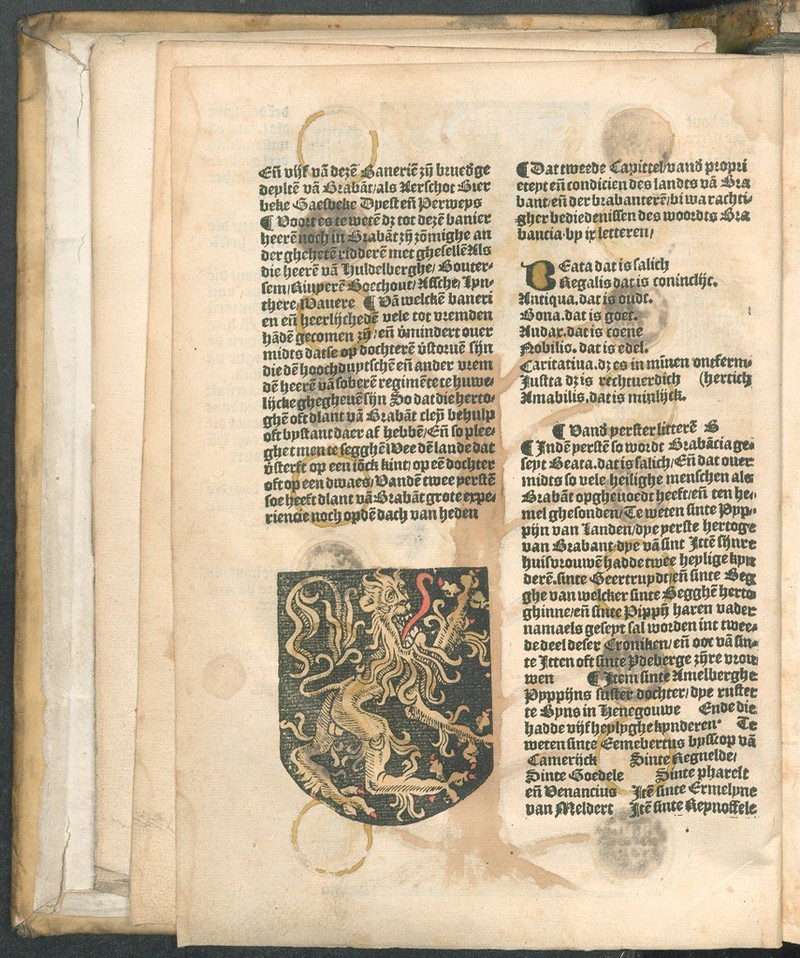 Eñ vijf vã dezẽ Baneriẽ zij bruedge
deyltẽ vã Brabãt/als Aerschot Bier
beke Gaesbeke Dyest eñ Perweys
¶ Voort es te wetẽ dz tot dezẽ banier
heerẽ noch in Brabãt zij zõmighe an
der ghehetẽ ridderẽ met ghesellẽ Als
die heerẽ vã Huldelberghe/ Bouter⸗
sem/ Riuyerẽ Boechout/ Assche/ Ipn⸗
there/ Wauere ¶ Vã welckẽ baneri
en eñ heerlijchedẽ vele tot vremden
hãdẽ gecomen zij/ eñ v̄mindert ouer
midts datse op dochterẽ v̄storuẽ sijn
die dẽ hoochduytschẽ eñ ander vrem
dẽ heerẽ vã soberẽ regimẽte te huwe⸗
lijcke gheghetuẽ sijn So dat die herto⸗
ghẽ oft dlant vã Brabãt cleyn behulp
oft bystant daer af hebbẽ/ Eñ so plee⸗
ghet men te segghẽ Wee dẽ lande dat
v̄sterft op een iõck kint/ op eẽ dochter
oft op een dwaes/ Vandẽ twee yerstẽ
soe heeft dlant vã Brabãt grote expe⸗
riencie noch opdẽ dach van heden
¶ Dat tweede Capittel/ vand̄ propri
eteyt eñ condicien des landts vã Bra
bant/ eñ der brabanterẽ/ bi warachti⸗
gher bediedenissen des woordts Bra
bancia by ix letteren/
BEata dat is salich
Regalis dat is coninclijc.
Antiqua. dat is oudt.
Bona. dat is goet.
Audax. dat is coene
Nobilis. dat is edel.
Caritatiua. dz es in mĩnen ontferm⸗
Iusta dz is rechtuerdich (hertich
Amabilis. dat is minlijck.
¶ Vand̄ yerster litterẽ B
¶ Indẽ yerstẽ so wordt Brabãcia ge⸗
seyt Beata. dat is salich/ Eñ dat ouer
midts so vele heilighe menschen als
Brabãt opgheuoedt heeft/ eñ ten he⸗
mel ghesonden/ Te weten sinte Pyp⸗
pijn van Landen/ dye yerste hertoge
van Brabant/ dye vã sint Ittẽ sijnre
huisvrouwẽ hadde twee heylige kyn
derẽ. sinte Geertruydt/ eñ sinte Beg
ghe van welcker sinte Begghẽ herto
ghinne/ eñ sinte Pippijn haren vader
namaels geseyt sal worden int twee⸗
de deel deser Croniken/ eñ ooc vã sin⸗
te Itten oft sinte Ydeberge zijre vrou
wen ¶ Item sinte Amelberghe
Pyppijns suster dochter/ dye rustet
te Byns in Henegouwe Ende die
hadde vijf heylyghe kynderen Te
weten sinte Eemebertus bysscop vã
Camerijck Sinte Regnelde/
Sinte Goedele Sinte pharelt
eñ Venancius Itẽ sinte Ermelyne
van Meldert Itẽ sinte Reynoffele